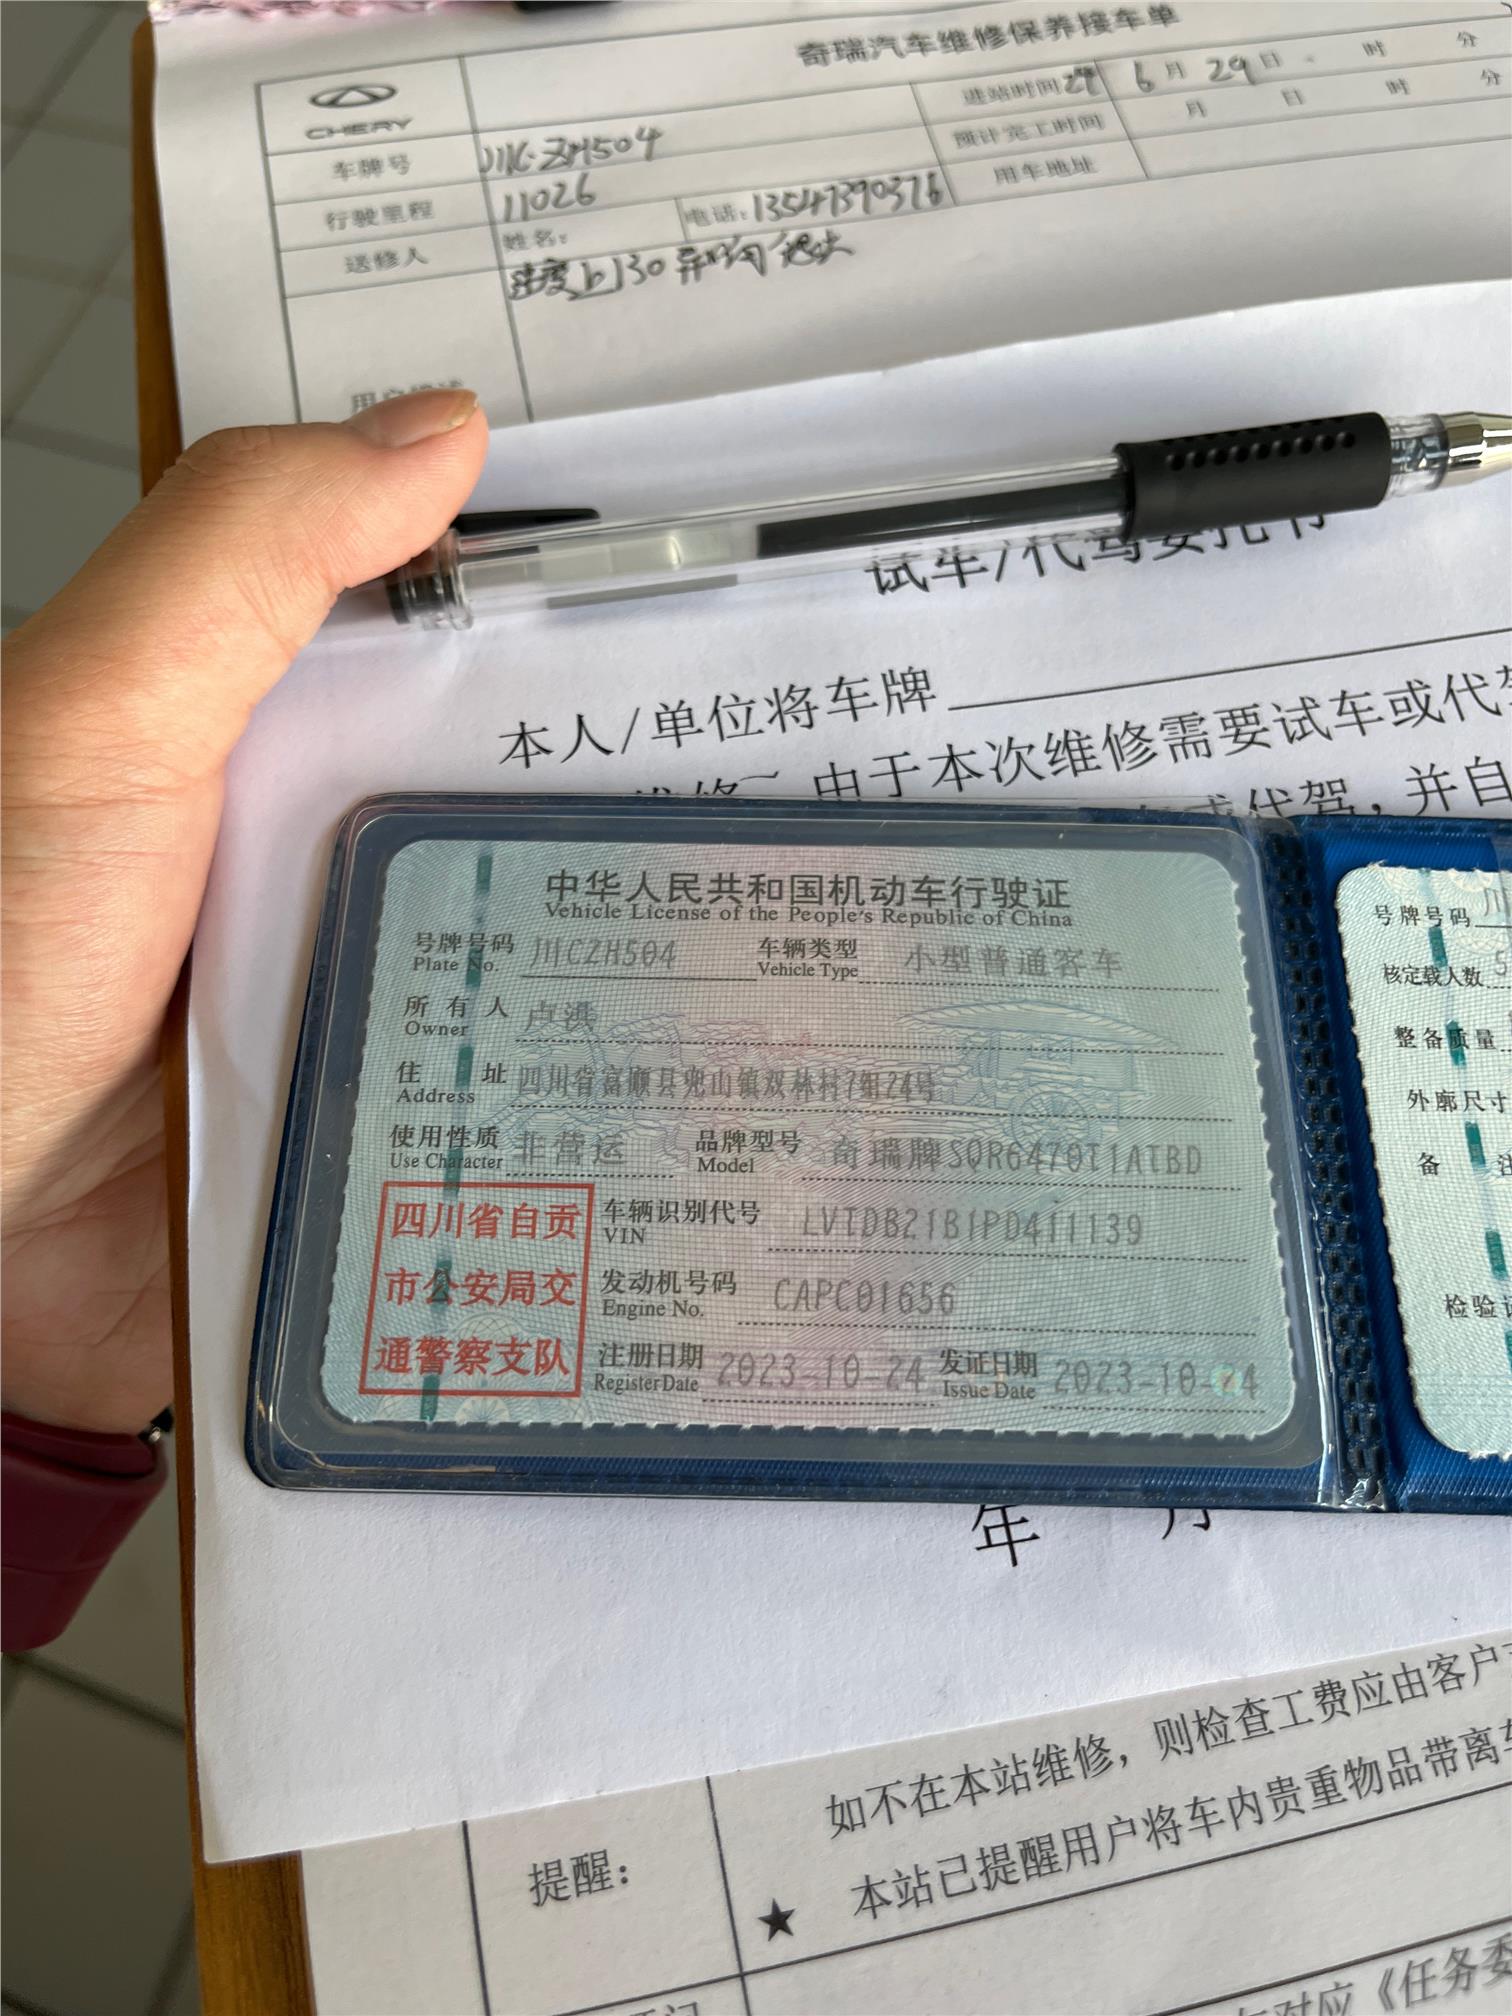 奇瑞汽车维修保养接车单
CHERY
进站时间 24 6月29日 时 分
车牌号 川C·ZH504 预计完工时间 月 日 时 分
行驶里程 11026 用车地址
送修人 姓名: 电话:13547390376
速度上130异响
试车/代驾委托书
本人/单位将车牌
由于本次维修需要试车或代驾
或代驾,并自
中华人民共和国机动车行驶证
Vehicle License of the People's Republic of China
号牌号码 川CZH504 车辆类型 小型普通客车
Plate No. Vehicle Type
所有人 卢洪
Owner
住址 四川省富顺县兜山镇双林村7组24号
Address
使用性质 非营运 品牌型号 奇瑞牌SQR6470T1ATBD
Use Character Model
四川省自贡
市公安局交
通警察支队
车辆识别代号 LVTDB21B1PD411139
VIN
发动机号码 CAPC01656
Engine No.
注册日期 2023-10-24 发证日期 2023-10-24
Register Date Issue Date
号牌号码 川
核定载人数 5
整备质量
外廓尺寸
备 注
检验
年 月
如不在本站维修,则检查工费应由客户
提醒:
★ 本站已提醒用户将车内贵重物品带离车
对应《任务委